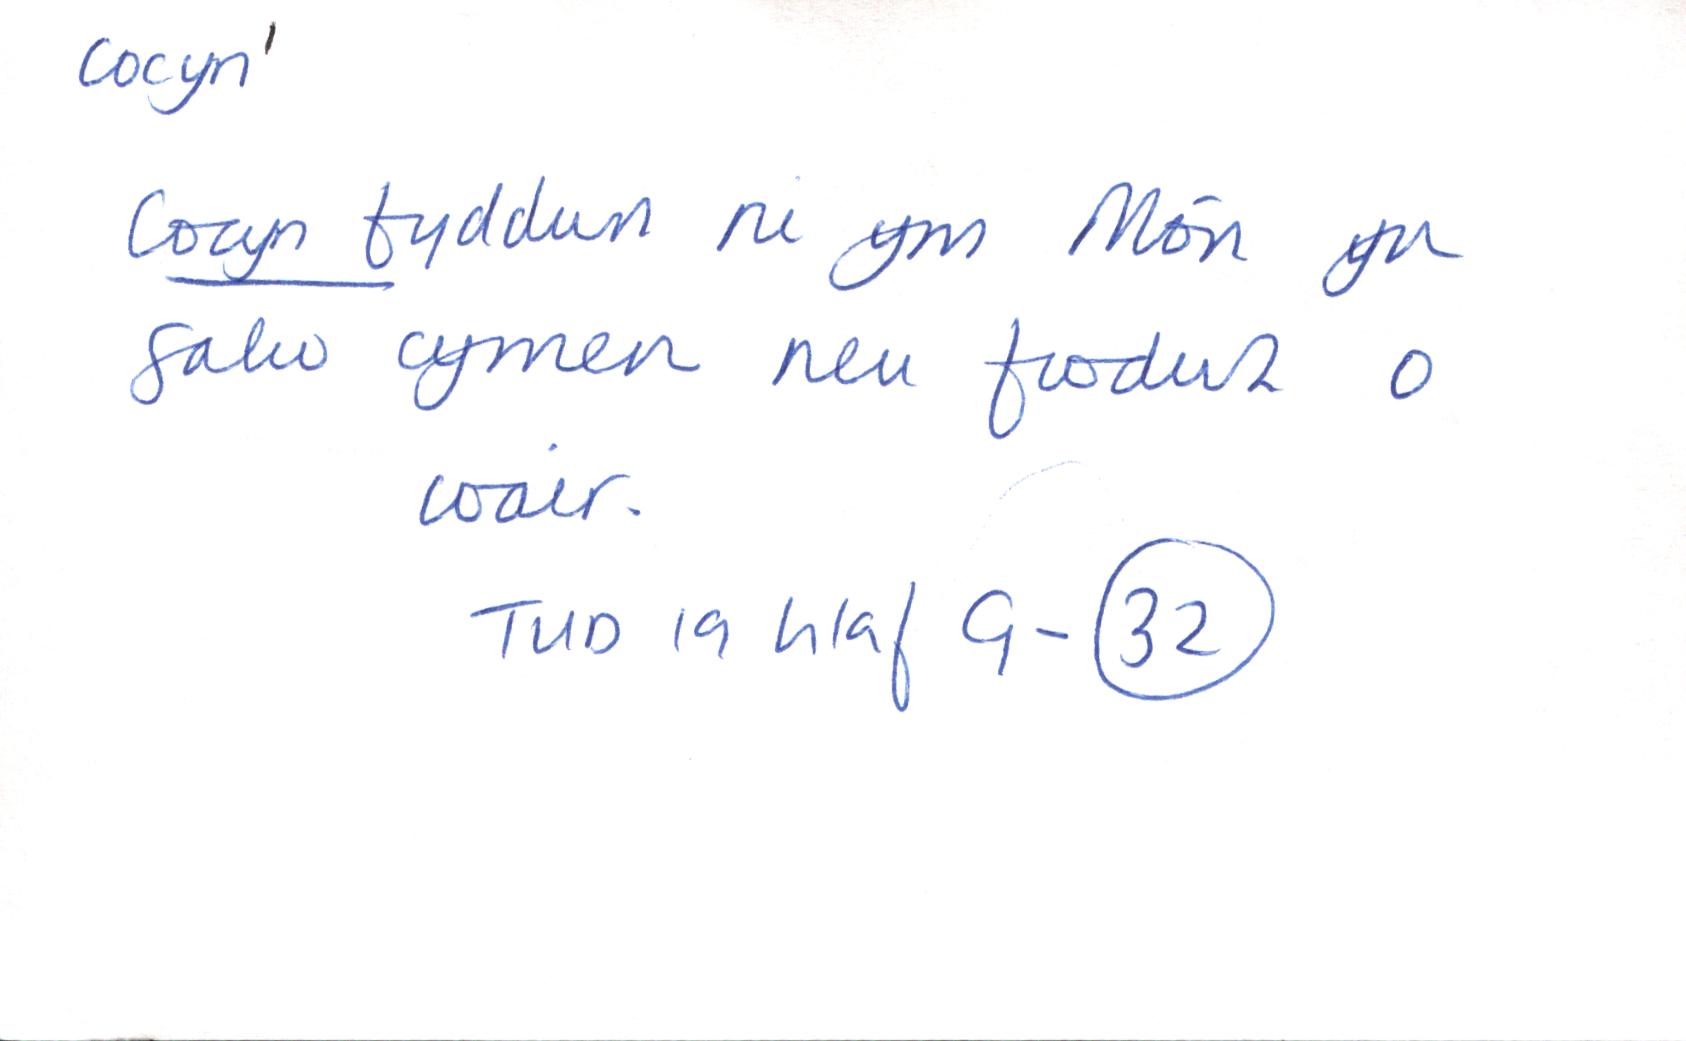 cocyn¹
Cocyn fyddwn ni ym Môn yn
galw cymen neu fwdwl o
wair.
TUD 19 hlaf G-32